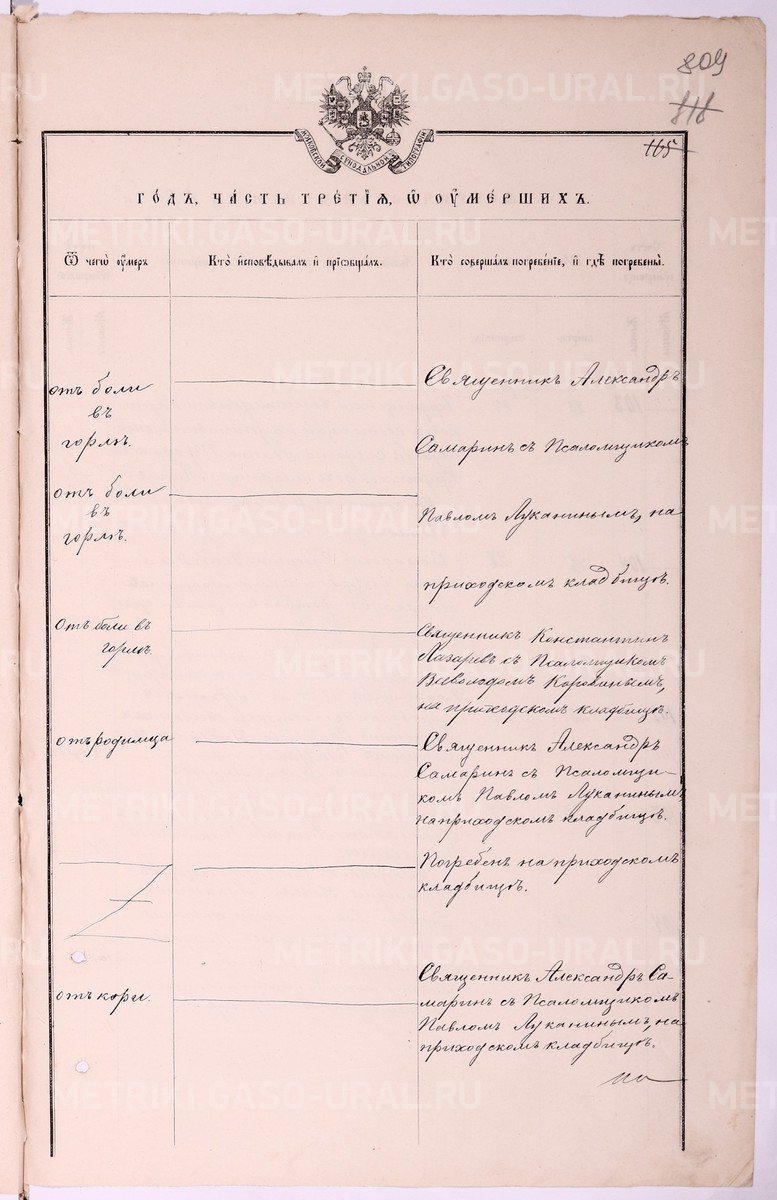 809
818
165
МОСКОВСКОЙ СѴНОДАЛЬНОЙ ТИПОГРАФІИ
ГО́ДЪ, ЧА́СТЬ ТРЕ́ТІѦ, Ѡ҆ ОУ҆МЕ́РШИХЪ.
Ѿ чегѡ̀ оу҆́меръ
Кто̀ и҆сповѣ́дывалъ и҆ прїѡбща́лъ.
Кто̀ соверша́лъ погребе́нїе, и҆ гдѣ̀ погребены̀.
отъ боли
въ
горлѣ.
Священникъ Александръ
Самаринъ съ Псаломщикомъ
отъ боли
въ
горлѣ.
Павломъ Луканинымъ, на
приходскомъ кладбищѣ.
Отъ боли въ
горлѣ.
Священникъ Константинъ
Лазаревъ съ Псаломщикомъ
Всеволодомъ Коровинымъ,
на приходскомъ кладбищѣ.
отъ родимца
Священникъ Александръ
Самаринъ съ Псаломщи-
комъ Павломъ Луканинымъ
на приходскомъ кладбищѣ.
Погребенъ на приходскомъ
кладбищѣ.
отъ кори.
Священникъ Александръ Са-
маринъ съ Псаломщикомъ
Павломъ Луканинымъ, на
приходскомъ кладбищѣ.
METRIKI.GASO-URAL.RU